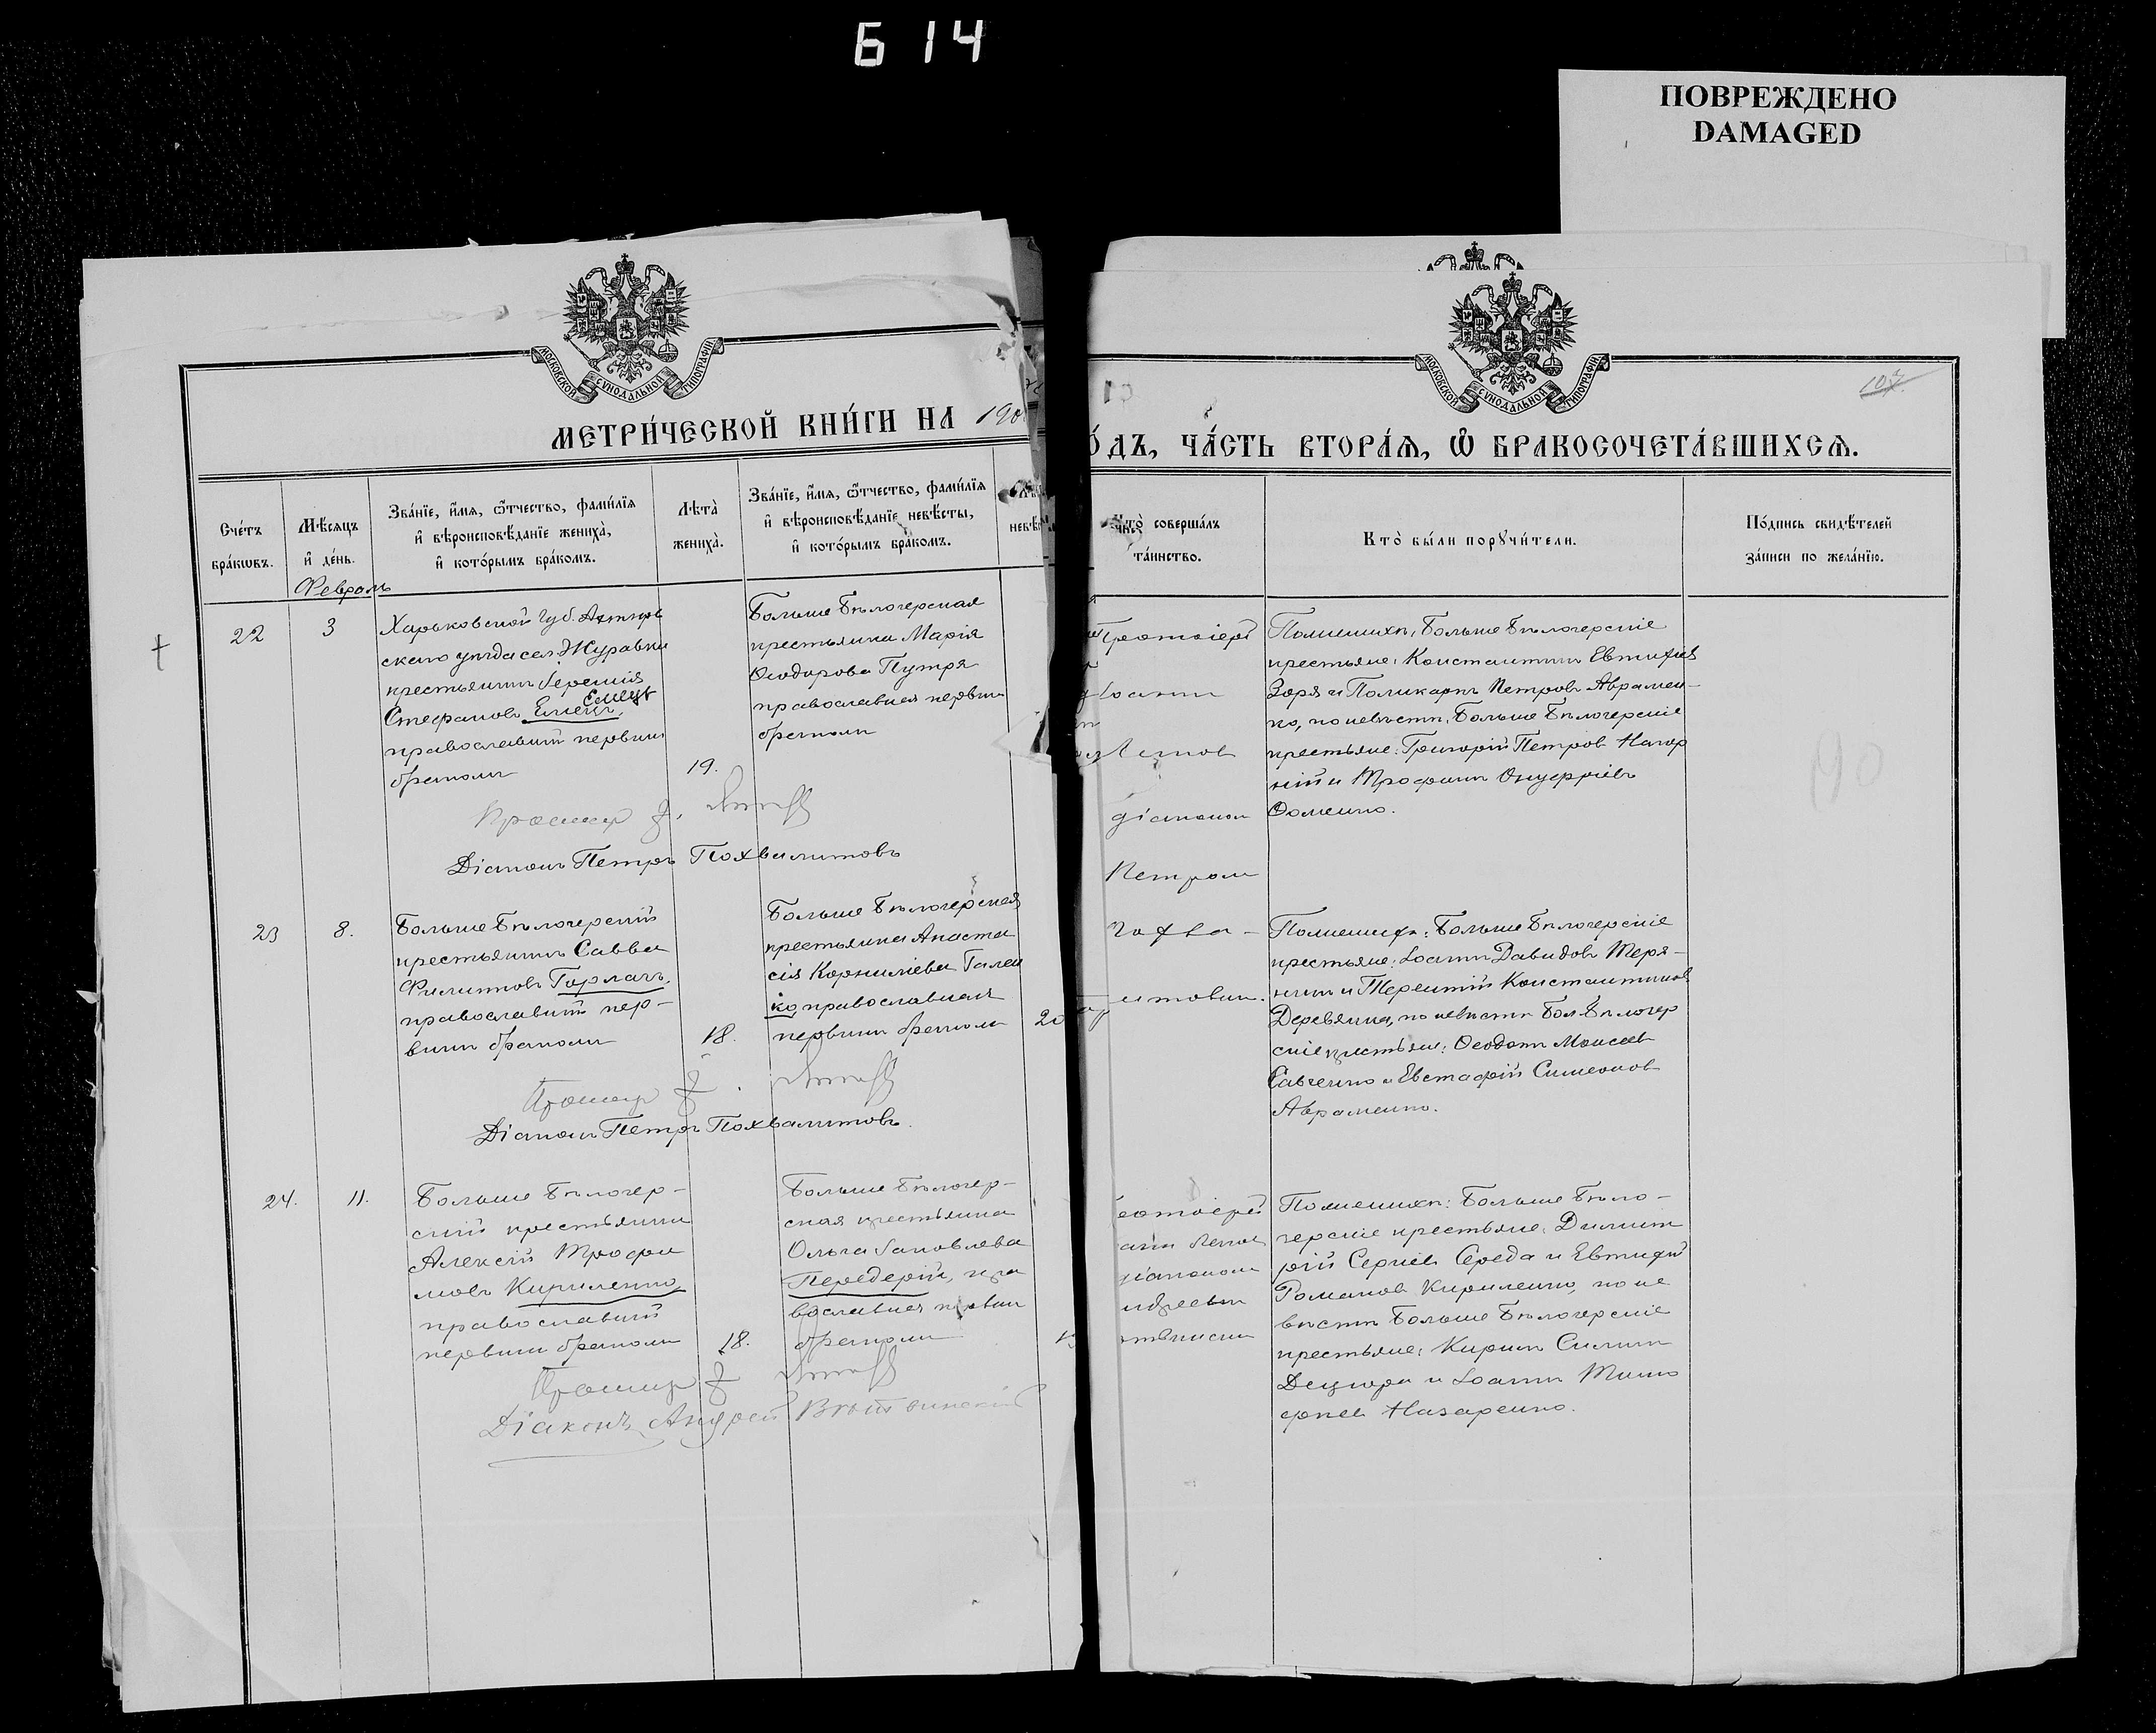 Б 14
ПОВРЕЖДЕНО
DAMAGED
МОСКОВСКОЙ СѴНОДАЛЬНОЙ ТИПОГРАФІИ
МОСКОВСКОЙ СѴНОДАЛЬНОЙ ТИПОГРАФІИ
МЕТРИ́ЧЕСКОЙ КНИ́ГИ НА 190
О́ДЪ, ЧА́СТЬ ВТОРА́Я, Ѿ БРАКОСОЧЕТА́ВШИХСЯ.
107
Сче́тъ
бра́кѡвъ.
Мѣ́сяцъ
и҆ де́нь.
Зва́нїе, и҆́мя, ѻ҆́тчество, фами́лїя
и҆ вѣроисповѣ́данїе жениха̀,
и҆ кото́рымъ бра́комъ.
Лѣта̀
жениха̀.
Зва́нїе, и҆́мя, ѻ҆́тчество, фами́лїя
и҆ вѣроисповѣ́данїе невѣ́сты,
и҆ кото́рымъ бра́комъ.
Кто̀ соверша́лъ
та́инство.
Кто̀ бы́ли порꙋчи́тели.
По́дпись свидѣ́телей
за́писи по жела́нїю.
Февраль
22
3
Харьковской губ. Ахтыр
скаго уѣзда сел. Журавки
крестьянинъ Іеремія
Емецъ
Стефановъ Емецъ,
православный первымъ
бракомъ
19.
Больше Бѣлозерская
крестьянка Марія
Ѳеодорова Путря
православная первым
бракомъ
Протоіерей
Іоанн
Лепов
діаконом
Петром
Похва-
литовым.
По женихѣ: Больше Бѣлозерскіе
крестьяне: Константинъ Евтихіев
Зоря и Поликарпъ Петровъ Аврамен-
ко, по невѣстѣ: Больше Бѣлозерскіе
крестьяне: Григорій Петров Нагор
ній и Трофимъ Онуфріевъ
Фоменко.
Діаконъ Петръ Похвалитовъ
23
8.
Больше Бѣлозерскій
крестьянинъ Савва
Филиповъ Горлачъ,
православный пер-
вым бракомъ
18.
Больше Бѣлозерская
крестьянка Анаста
сія Корниліева Гален
ко православная
первым бракомъ
20
По женихѣ: Больше Бѣлозерскіе
крестьяне: Іоаннъ Давидовъ Теря-
никъ и Терентій Константинов
Деревянка, по невѣстѣ Бол. Бѣлозер
скіе крестьяне: Ѳеодотъ Моисеев
Савченко и Евстафій Симеонов
Авраменко.
Діаконъ Петръ Похвалитовъ.
24.
11.
Больше Бѣлозер-
скій крестьянин
Алексій Трофи
мовъ Кириленко
православный
первым бракомъ
18.
Больше Бѣлозер-
ская крестьянка
Ольга Іаковлева
Передерій, пра
вославная первым
бракомъ
По женихѣ: Больше Бѣло-
зерскіе крестьяне: Димит
рій Сергіев Середа и Евтихій
Романов Кириленко, по не
вѣстѣ Больше Бѣлозерскіе
крестьяне: Кирилъ Силин
Децюра и Іоаннъ Тимо
феев Назаренко.
Діаконъ Андрей